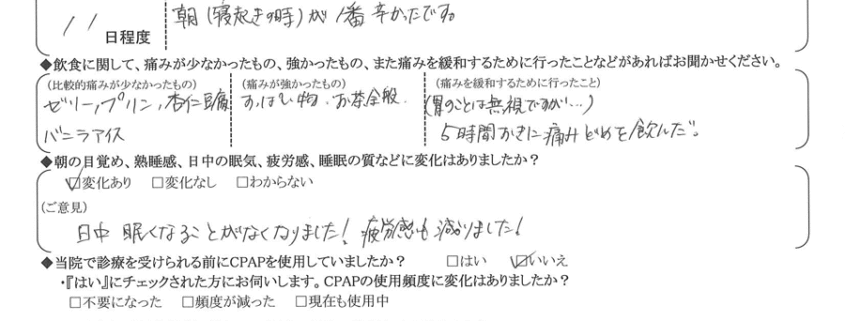 11 日程度
朝(寝起きの時)が1番辛かったです。
◆飲食に関して、痛みが少なかったもの、強かったもの、また痛みを緩和するために行ったことなどがあればお聞かせください。
(比較的痛みが少なかったもの)
ゼリー、プリン、杏仁豆腐
バニラアイス
(痛みが強かったもの)
すっぱい物、お茶全般.
(痛みを緩和するために行ったこと)
(胃のことは無視ですが…)
5時間おきに痛みどめを飲んだ。
◆朝の目覚め、熟睡感、日中の眠気、疲労感、睡眠の質などに変化はありましたか?
☑変化あり □変化なし □わからない
(ご意見)
日中 眠くなることがなくなりました! 疲労感も減りました!
◆当院で診療を受けられる前にCPAPを使用していましたか? □はい ☑いいえ
・『はい』にチェックされた方にお伺いします。CPAPの使用頻度に変化はありましたか?
□不要になった □頻度が減った □現在も使用中